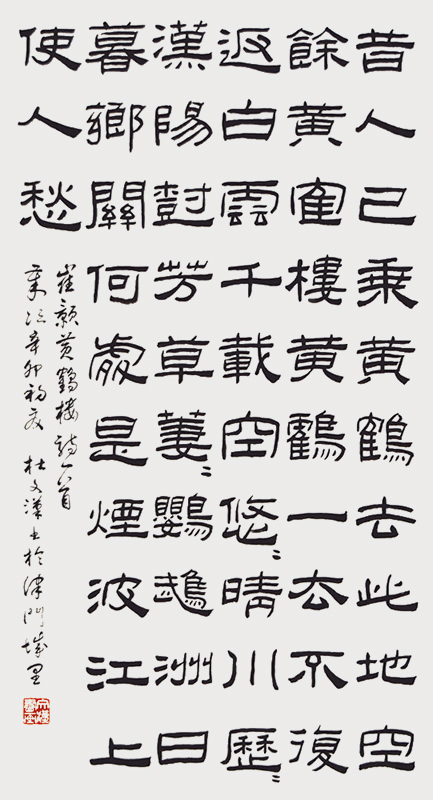 昔人已乘黄鶴去此地空
餘黄寉樓黄鸖一去不復
返白雲千載空悠〻晴川歷〻
漢陽尌芳草萋〻鸚鵡洲日
暮鄉關何處是煙波江上
使人愁
崔顥黄鶴樓詩一首
歲次辛卯初夏 杜文漢書於津門城里